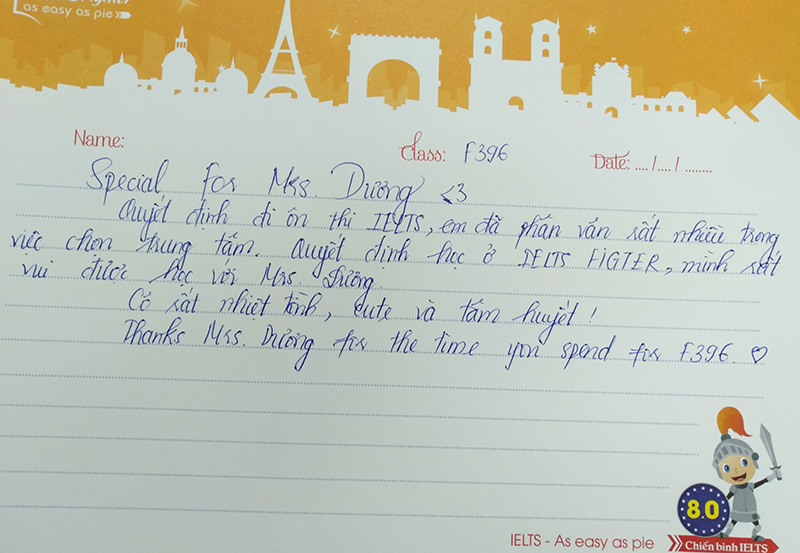 as easy as pie
Name:
Class: F396
Date: ..../..../........
Special for Mrs. Dương <3
Quyết định đi ôn thi IELTS, em đã phấn vấn rất nhiều trong
việc chọn trung tâm. Quyết định học ở IELTS FIGTER, mình rất
vui được học với Mrs. Dương.
Cô rất nhiệt tình, cute và tâm huyết!
Thanks Mrs. Dương for the time you spend for F396. ♡
8.0
IELTS - As easy as pie
Chiến binh IELTS